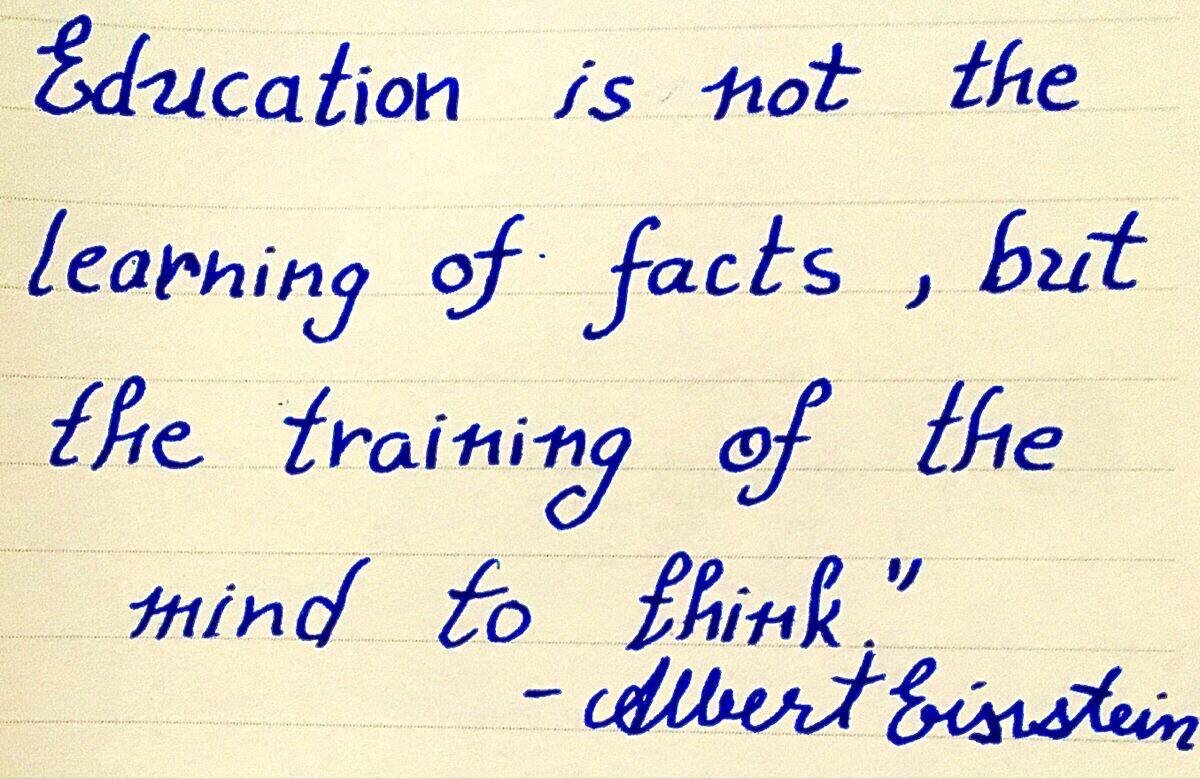 Education is not the
learning of facts , but
the training of the
mind to think."
- Albert Einstein